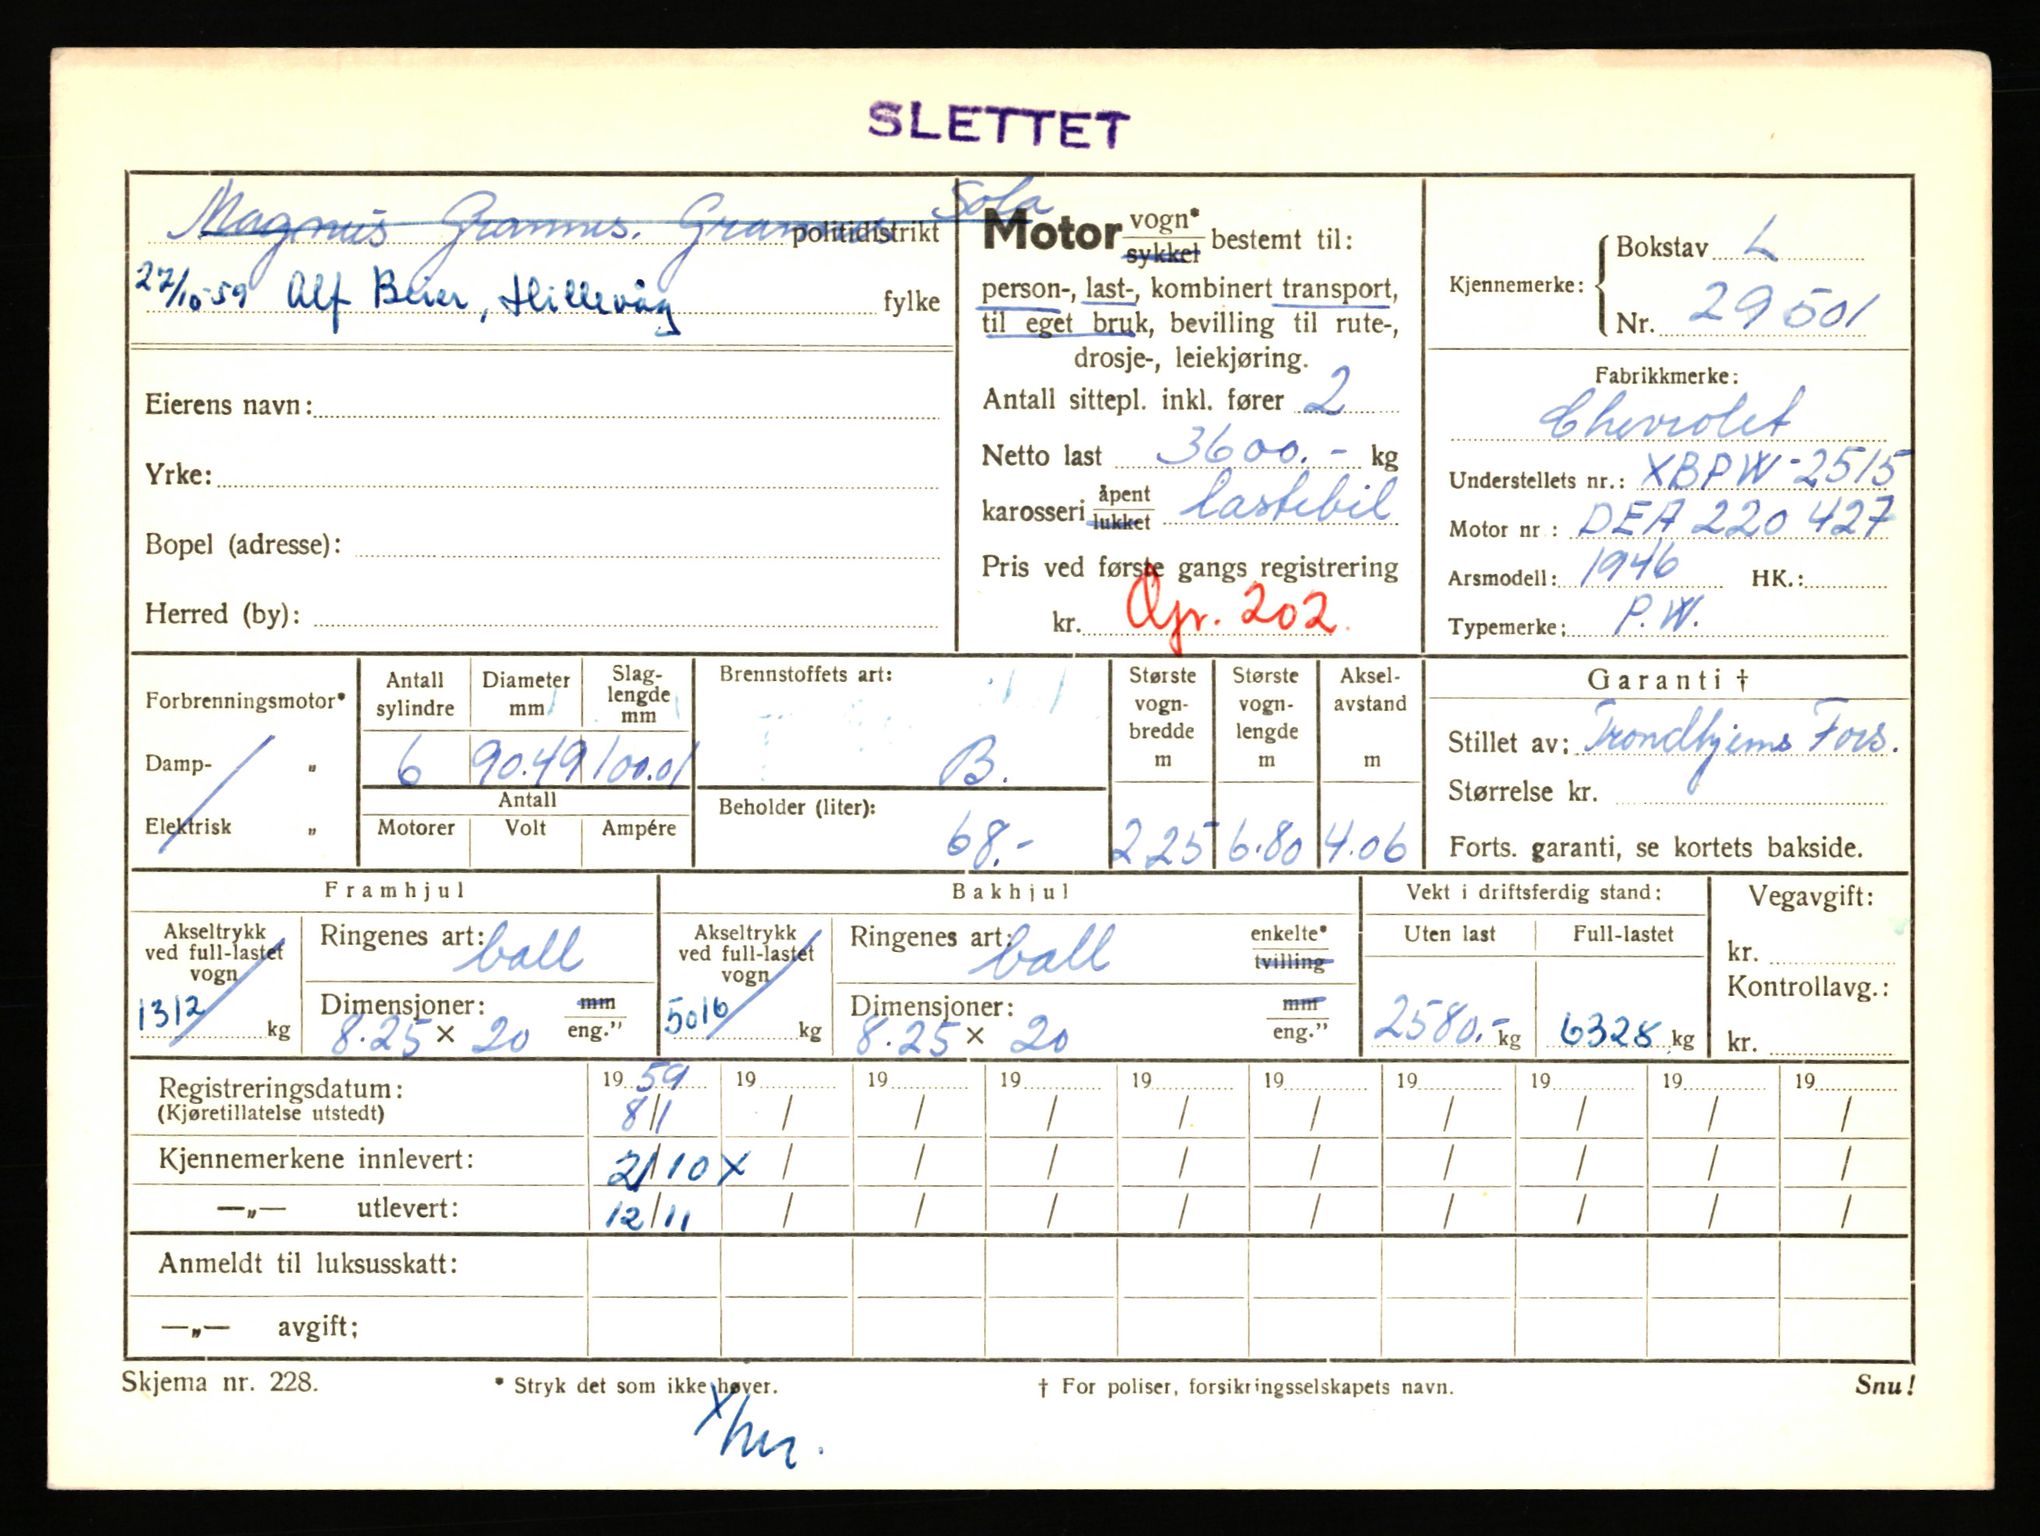 SLETTET
Magnus Grannes. Grannes Sola
politidistrikt
27/10-59 Alf Beier, Hillevåg
fylke
Eierens navn:
Yrke:
Bopel (adresse):
Herred (by):
Motor vogn* sykkel bestemt til:
person-, last-, kombinert transport,
til eget bruk, bevilling til rute-,
drosje-, leiekjøring.
Antall sittepl. inkl. fører 2
Netto last 3600.- kg
karosseri åpent lukket lastebil
Pris ved første gangs registrering
kr. Gjr. 202.
Kjennemerke: Bokstav L
Nr. 29501
Fabrikkmerke:
Chevrolet
Understellets nr.: XBPW-2515
Motor nr: DEA 220427
Årsmodell: 1946 HK.:
Typemerke: P.W.
Forbrenningsmotor*
Damp- „
Elektrisk „
Antall sylindre 6
Diameter mm 90.49
Slag-lengde mm 100.01
Antall
Motorer Volt Ampére
Brennstoffets art:
B.
Beholder (liter):
68.-
Største vogn-bredde m 2.25
Største vogn-lengde m 6.80
Aksel-avstand m 4.06
Garanti †
Stillet av: Trondhjems Fors.
Størrelse kr.
Forts. garanti, se kortets bakside.
Framhjul
Akseltrykk ved full-lastet vogn
1312 kg
Ringenes art: ball
Dimensjoner: mm
8.25 x 20 eng."
Bakhjul
Akseltrykk ved full-lastet vogn
5016 kg
Ringenes art: ball enkelte* tvilling
Dimensjoner: mm
8.25 x 20 eng."
Vekt i driftsferdig stand:
Uten last Full-lastet
2580.- kg 6328 kg
Vegavgift:
kr.
Kontrollavg.:
kr.
Registreringsdatum: 19 59 19 19 19 19 19 19 19 19 19
(Kjøretillatelse utstedt) 8/1 / / / / / / / / /
Kjennemerkene innlevert: 21/10 x / / / / / / / / /
—„— utlevert: 12/11 / / / / / / / / /
Anmeldt til luksusskatt:
—„— avgift;
Skjema nr. 228. * Stryk det som ikke høver. † For poliser, forsikringsselskapets navn. Snu!
x